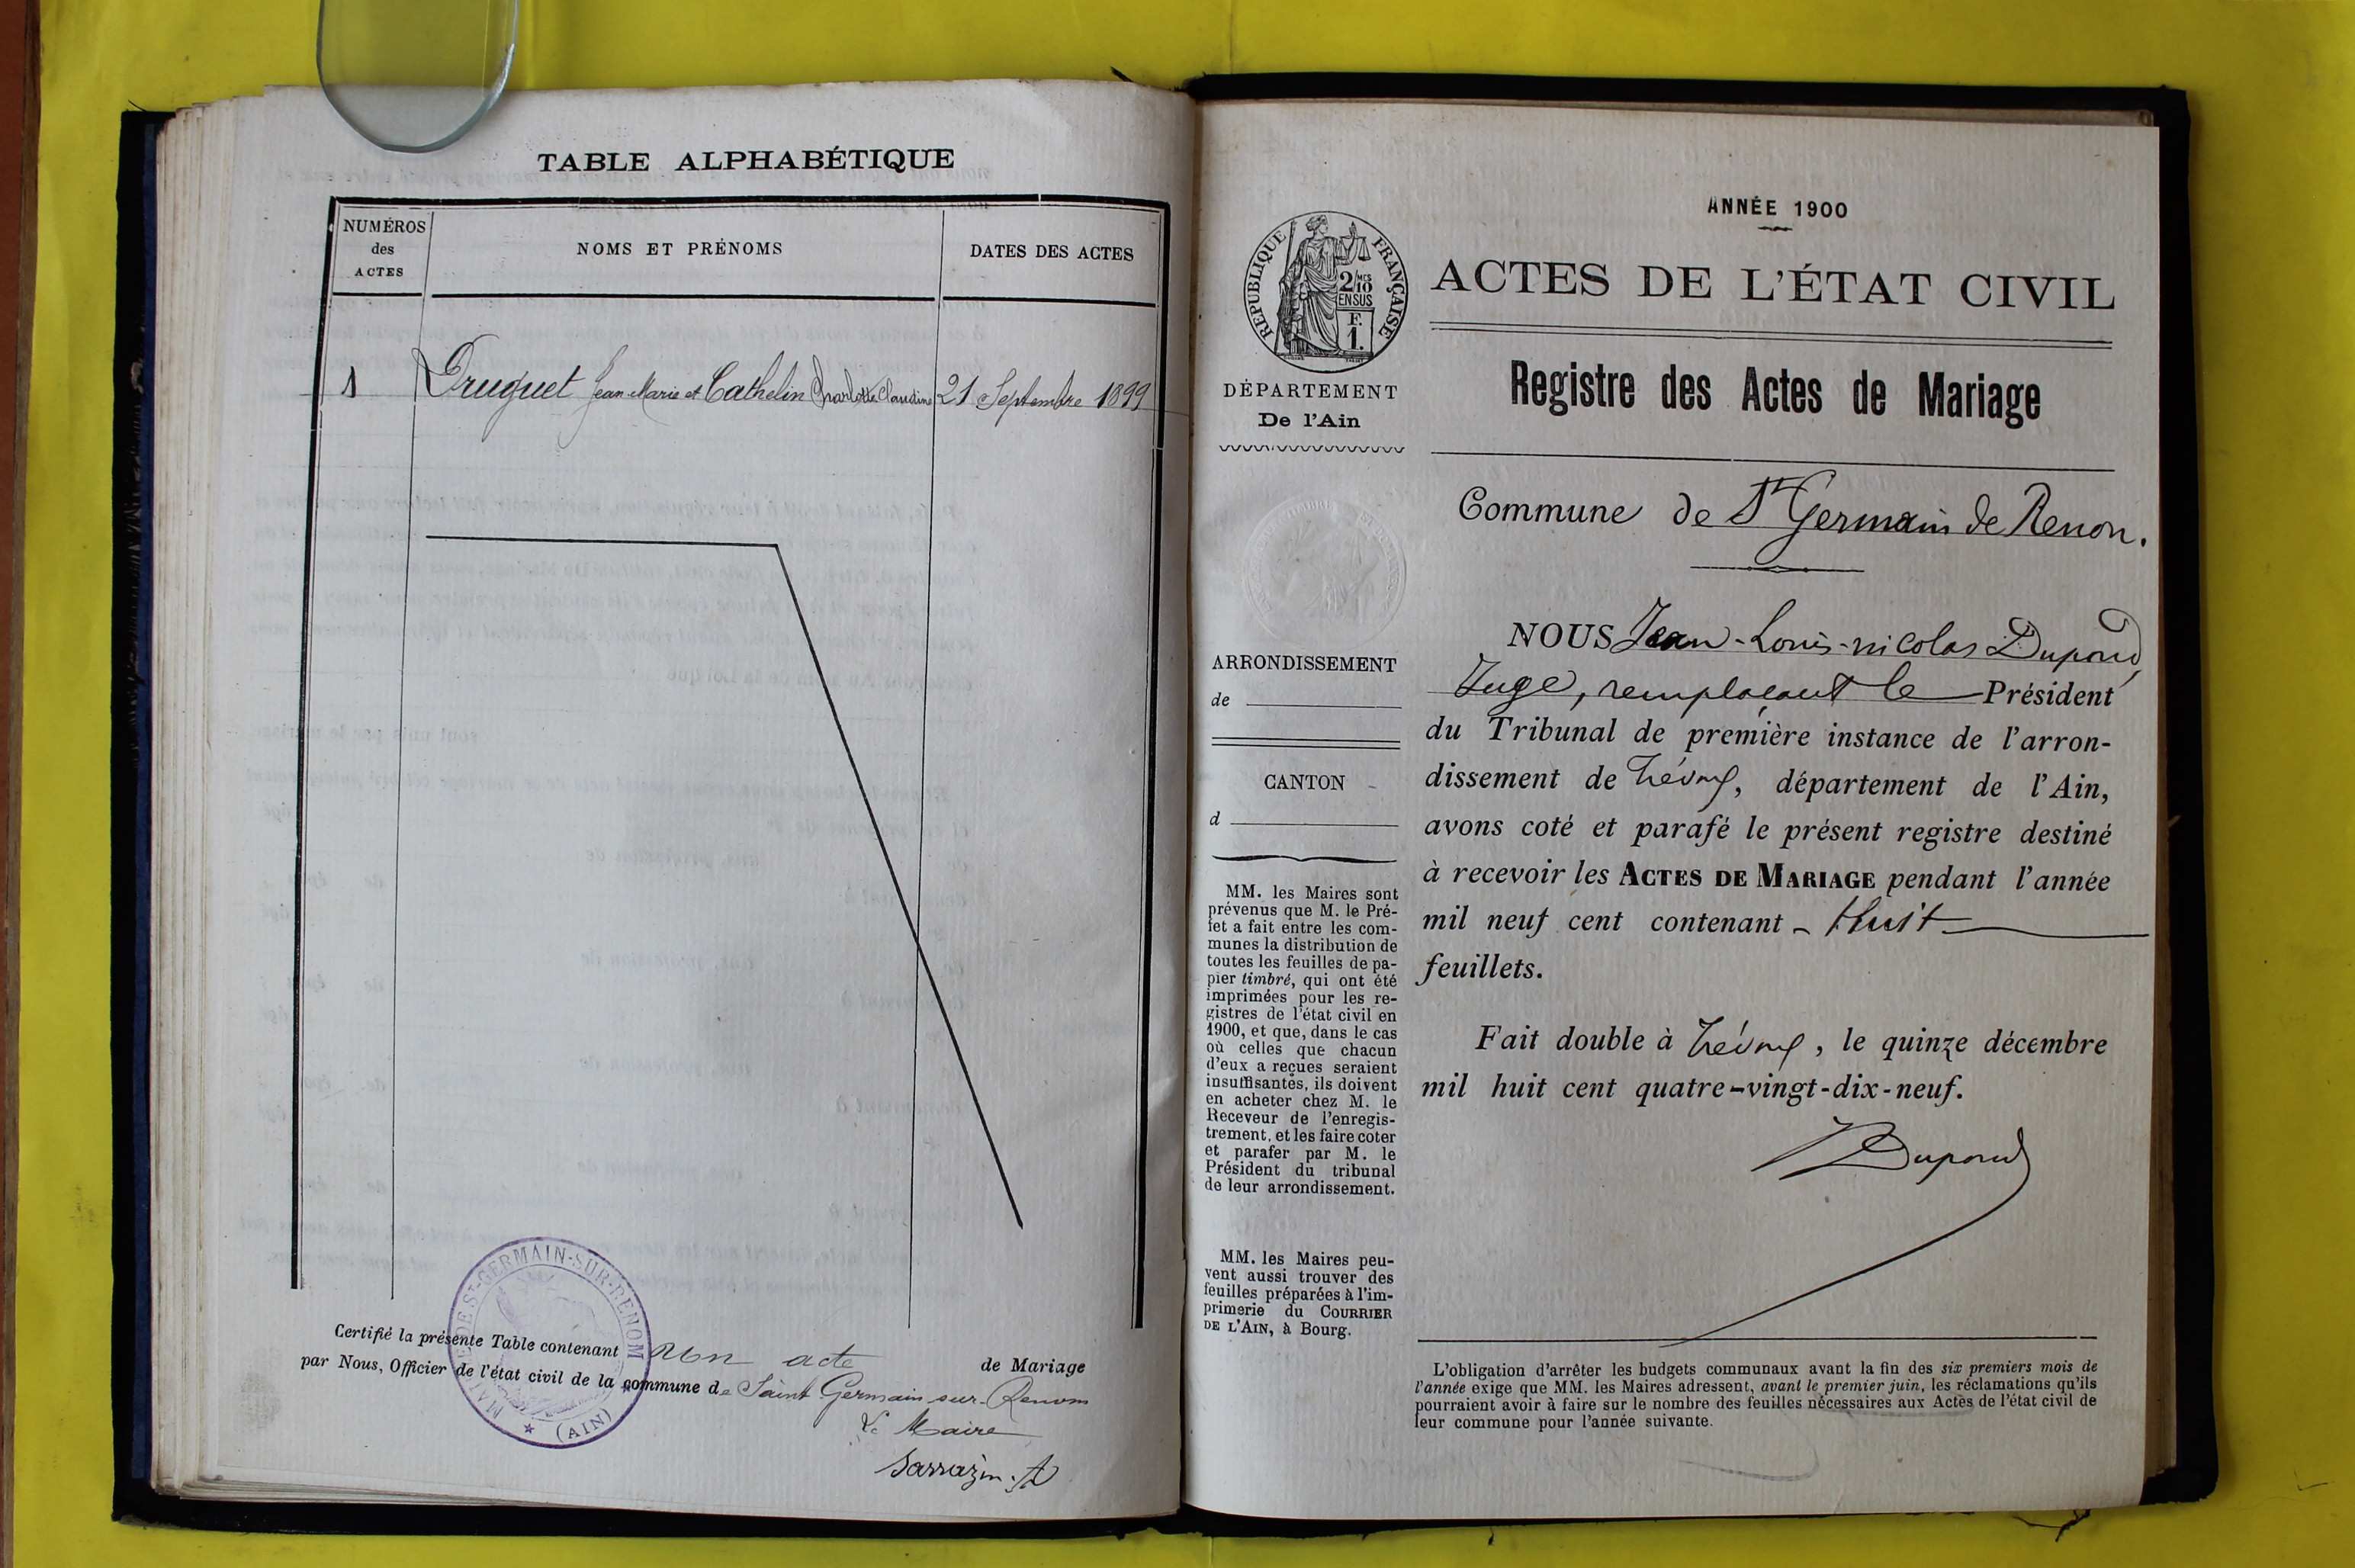 TABLE ALPHABÉTIQUE
NUMÉROS
des
ACTES
NOMS ET PRÉNOMS
DATES DES ACTES
1 Druguet Jean-Marie et Cathelin Charlotte Claudine 21 Septembre 1899
MAIRIE DE ST-GERMAIN-SUR-RENOM
★ (AIN)
Certifié la présente Table contenant Un acte de Mariage
par Nous, Officier de l'état civil de la commune de Saint Germain sur Renom
Le Maire
Sarrazin. A
ANNÉE 1900
RÉPUBLIQUE FRANÇAISE
2/10 MES
EN SUS
F.
1.
ACTES DE L'ÉTAT CIVIL
DÉPARTEMENT
De l'Ain
Registre des Actes de Mariage
Commune de St Germain de Renon.
ARRONDISSEMENT
de
CANTON
d
MM. les Maires sont
prévenus que M. le Pré-
fet a fait entre les com-
munes la distribution de
toutes les feuilles de pa-
pier timbré, qui ont été
imprimées pour les re-
gistres de l'état civil en
1900, et que, dans le cas
où celles que chacun
d'eux a reçues seraient
insuffisantes, ils doivent
en acheter chez M. le
Receveur de l'enregis-
trement, et les faire coter
et parafer par M. le
Président du tribunal
de leur arrondissement.
MM. les Maires peu-
vent aussi trouver des
feuilles préparées à l'im-
primerie du COURRIER
DE L'AIN, à Bourg.
NOUS Jean-Louis-nicolas Dupond,
Juge, remplaçant le Président
du Tribunal de première instance de l'arron-
dissement de Trévoux, département de l'Ain,
avons coté et parafé le présent registre destiné
à recevoir les ACTES DE MARIAGE pendant l'année
mil neuf cent contenant - Huit
feuillets.
Fait double à Trévoux, le quinze décembre
mil huit cent quatre-vingt-dix-neuf.
Dupond
L'obligation d'arrêter les budgets communaux avant la fin des six premiers mois de
l'année exige que MM. les Maires adressent, avant le premier juin, les réclamations qu'ils
pourraient avoir à faire sur le nombre des feuilles nécessaires aux Actes de l'état civil de
leur commune pour l'année suivante.